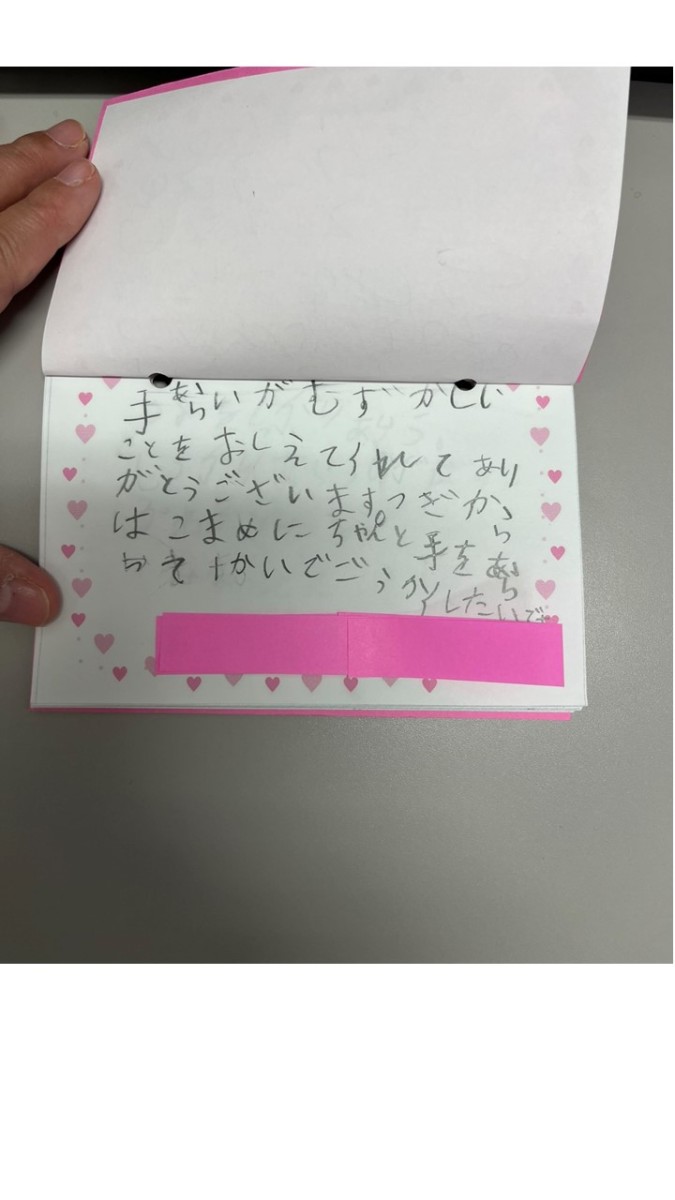 手あらいがむずかしい
ことをおしえてくれてあり
がとうございます。つぎから
はこまめにちゃんと手をあら
てせかいでごう
したいです